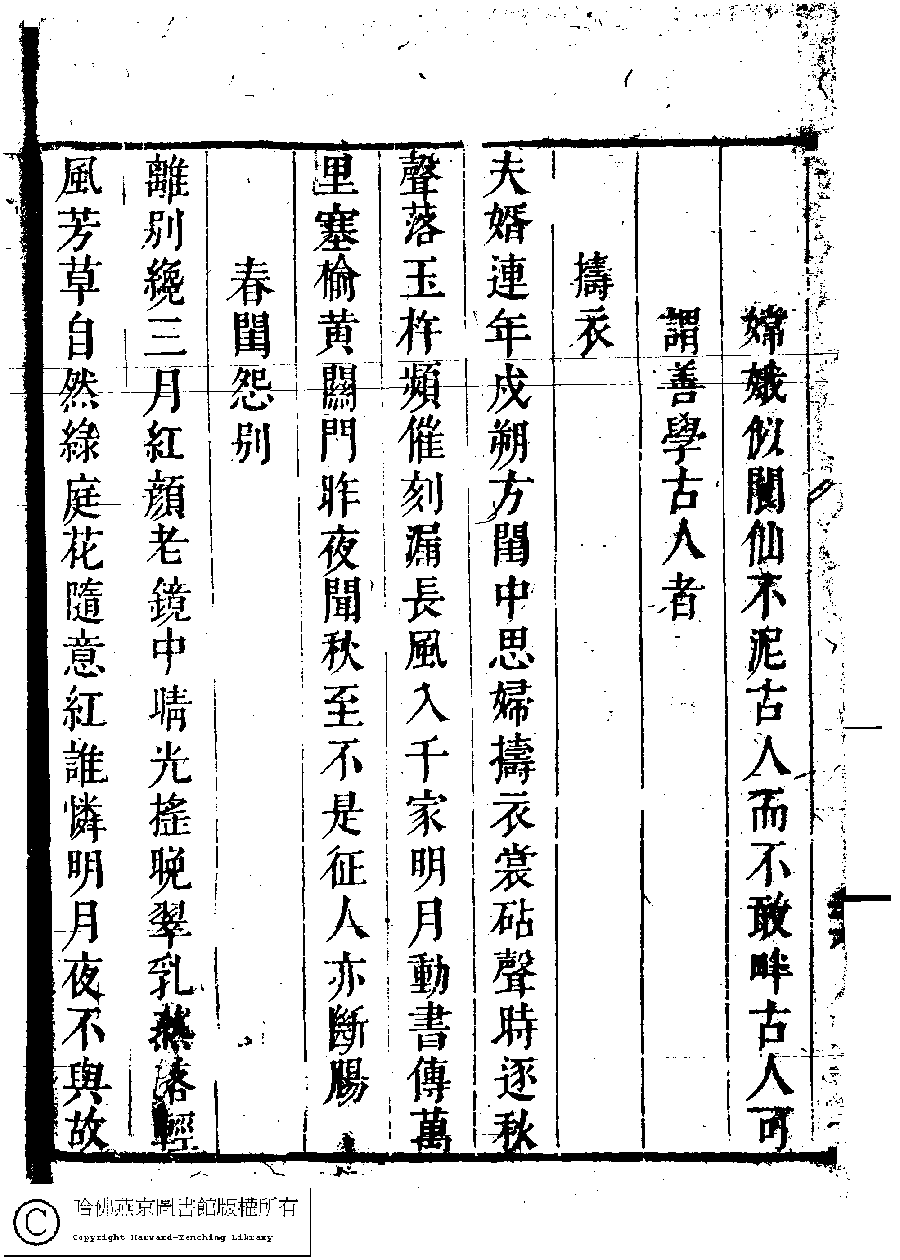 嫦娥似閬仙不泥古人而不敢畔古人可
謂善學古人者
擣衣
夫婿連年戍朔方閨中思婦擣衣裳砧聲時逐秋
聲落玉杵頻催刻漏長風入千家明月動書傳萬
里塞榆黃關門昨夜聞秋至不是征人亦斷腸
春閨怨别
離别纔三月紅顔老鏡中晴光搖晚翠乳燕落輕
風芳草自然綠庭花隨意紅誰憐明月夜不與故
哈佛燕京圖書館版權所有
Copyright Harvard-Yenching Library